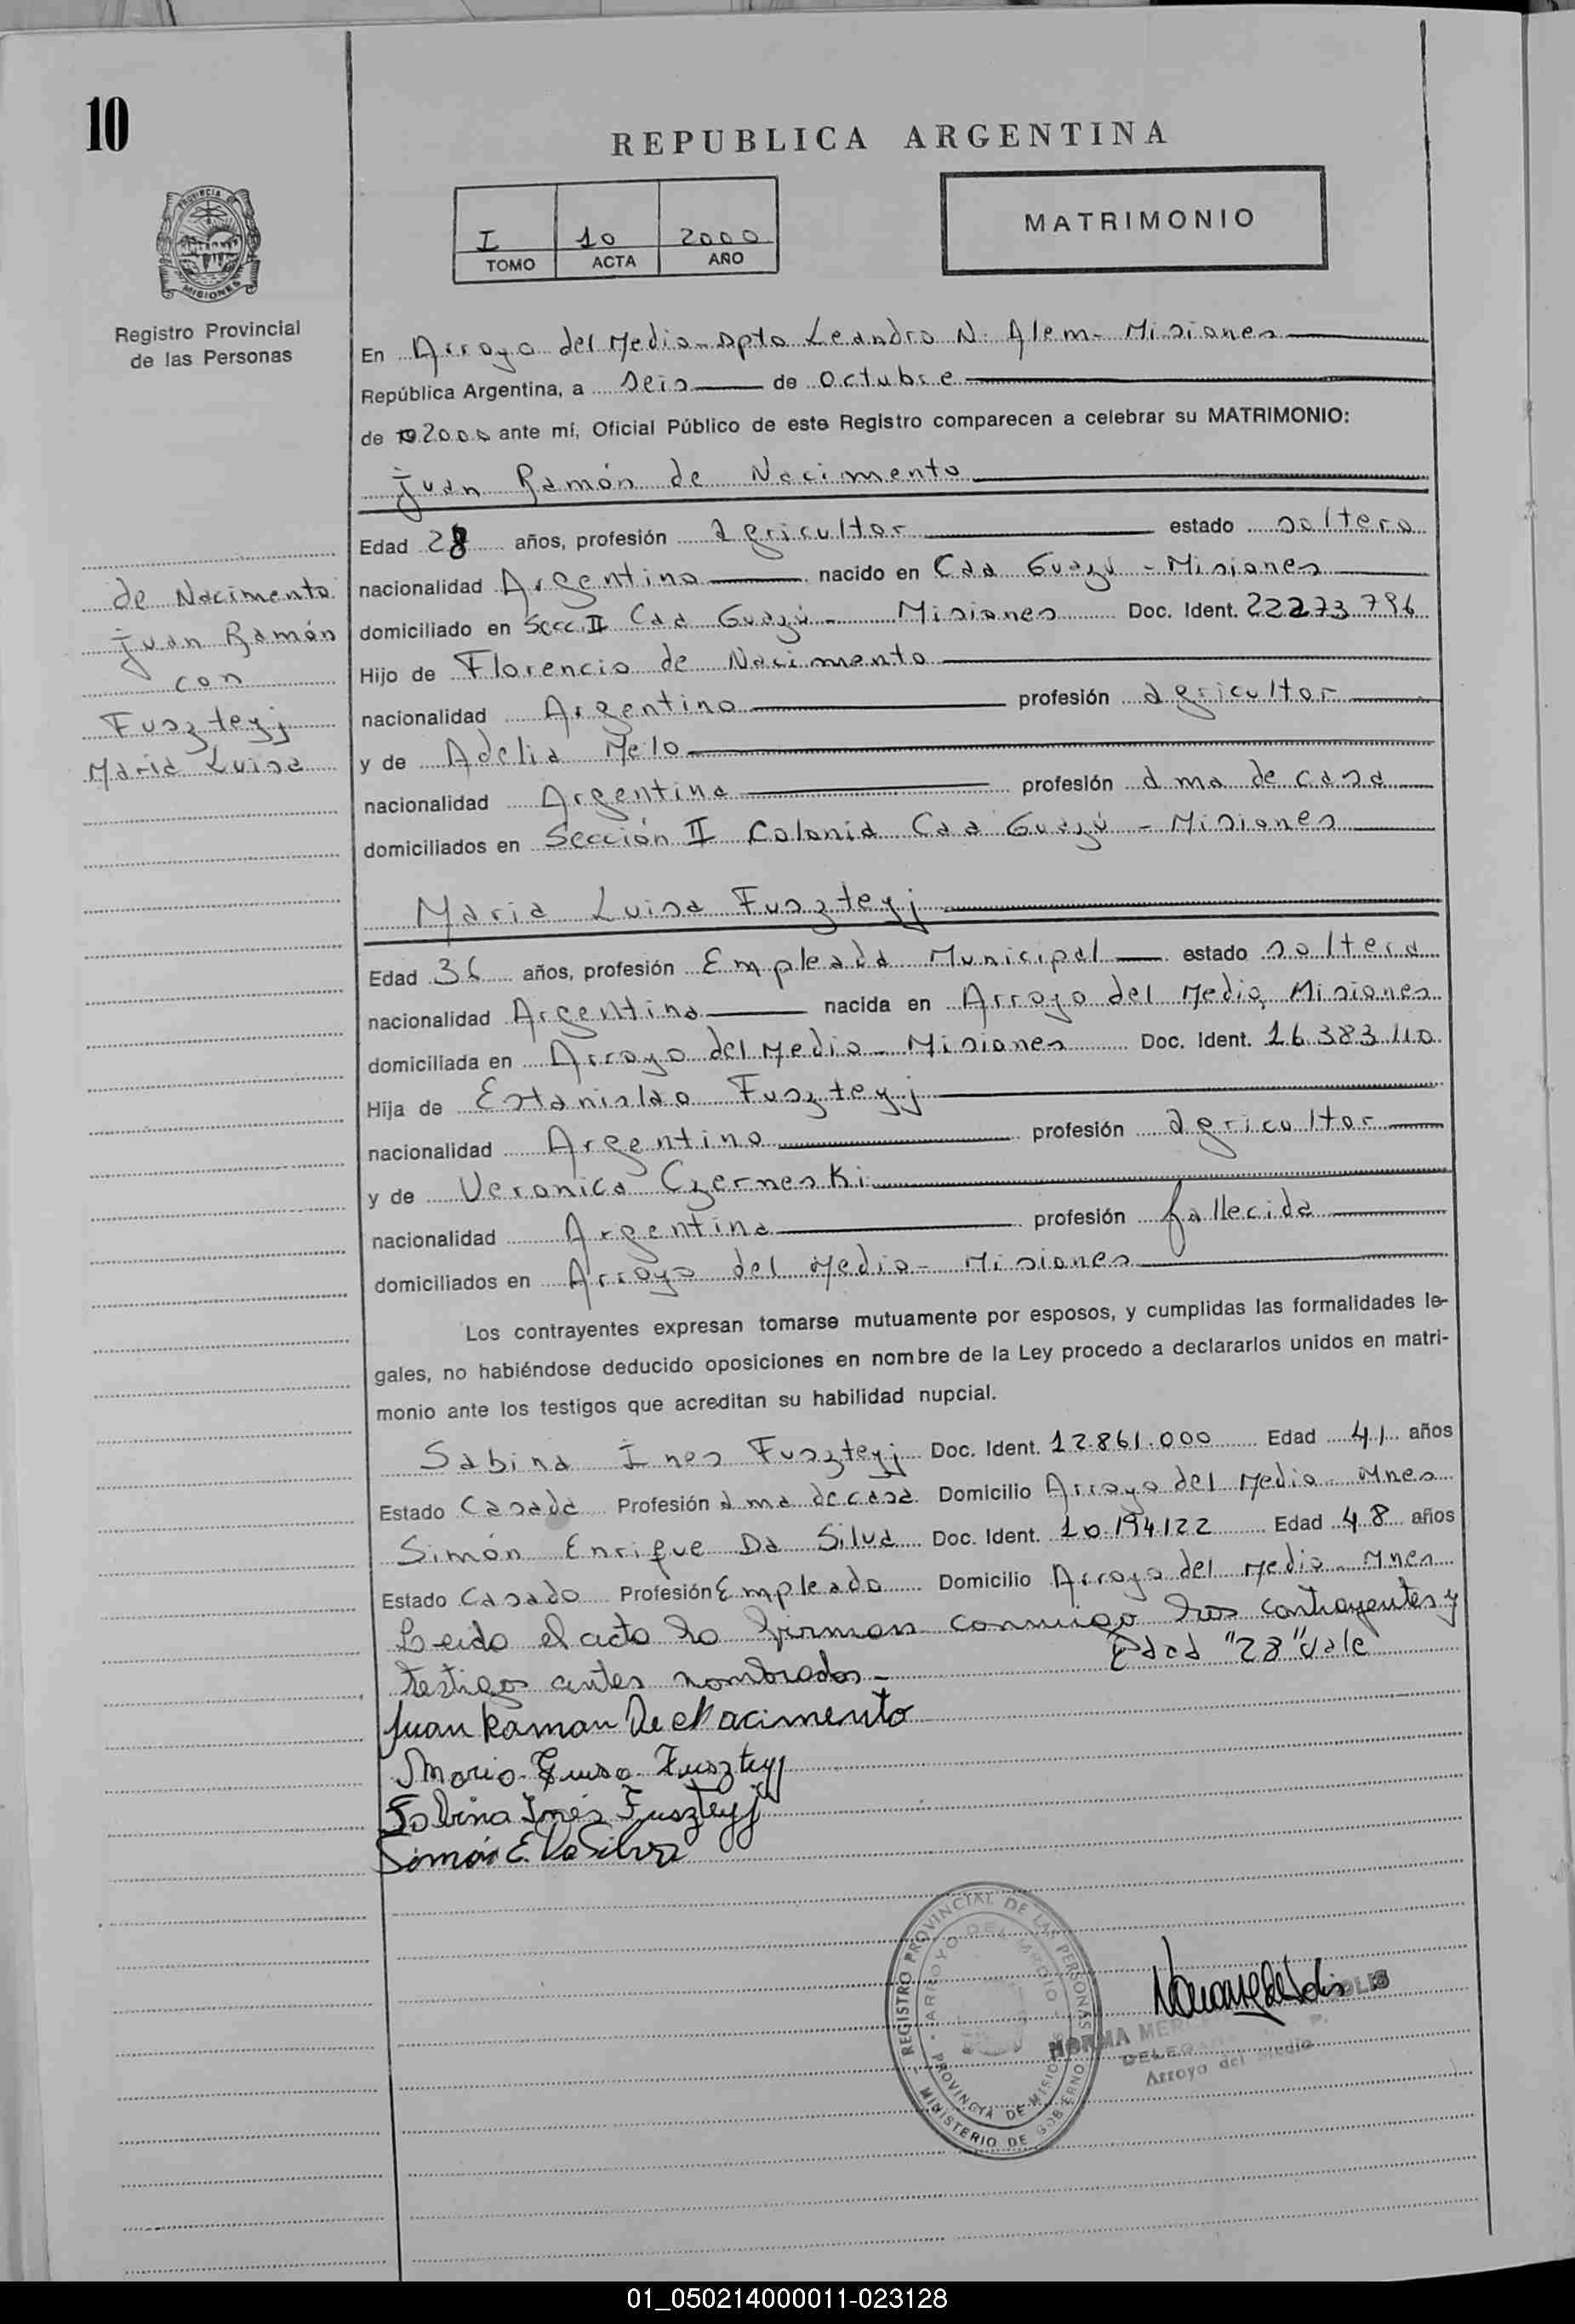 10
REPUBLICA ARGENTINA
PROVINCIA DE
MISIONES
I 10 2000
TOMO ACTA AÑO
MATRIMONIO
Registro Provincial
de las Personas
En Arroyo del Medio - Dpto Leandro N. Alem - Misiones
República Argentina, a seis de octubre
de 2000 ante mí, Oficial Público de este Registro comparecen a celebrar su MATRIMONIO:
Juan Ramón de Nacimento
Edad 28 años, profesión agricultor estado soltero
nacionalidad Argentino nacido en Caa Guazú - Misiones
domiciliado en Secc. II Caa Guazú - Misiones Doc. Ident. 22273.796
Hijo de Florencio de Nacimento
nacionalidad Argentino profesión agricultor
y de Adelia Melo
nacionalidad Argentina profesión ama de casa
domiciliados en Sección II Colonia Caa Guazú - Misiones
de Nacimento
Juan Ramón
con
Fuszteyj
Maria Luisa
Maria Luisa Fuszteyj
Edad 36 años, profesión Empleada Municipal estado soltera
nacionalidad Argentina nacida en Arroyo del Medio, Misiones
domiciliada en Arroyo del Medio - Misiones Doc. Ident. 16.383.110
Hija de Estanislao Fuszteyj
nacionalidad Argentino profesión agricultor
y de Veronica Czerneski
nacionalidad Argentina profesión fallecida
domiciliados en Arroyo del Medio - Misiones
Los contrayentes expresan tomarse mutuamente por esposos, y cumplidas las formalidades le-
gales, no habiéndose deducido oposiciones en nombre de la Ley procedo a declararlos unidos en matri-
monio ante los testigos que acreditan su habilidad nupcial.
Sabina Ines Fuszteyj Doc. Ident. 12.861.000 Edad 41 años
Estado Casada Profesión ama de casa Domicilio Arroyo del Medio - Mnes
Simón Enrique Da Silva Doc. Ident. 10.194.122 Edad 48 años
Estado Casado Profesión Empleado Domicilio Arroyo del Medio - Mnes
Leido el acto lo firman conmigo los contrayentes y
testigos antes nombrados - Edad "28" vale
Juan Ramon De Nacimento
Maria Luisa Fuszteyj
Sabina Inés Fuszteyj
Simón E. Da Silva
REGISTRO PROVINCIAL DE LAS PERSONAS
ARROYO DEL MEDIO
PROVINCIA DE MISIONES
MINISTERIO DE GOBIERNO
NORMA
Arroyo del Medio
01_050214000011-023128